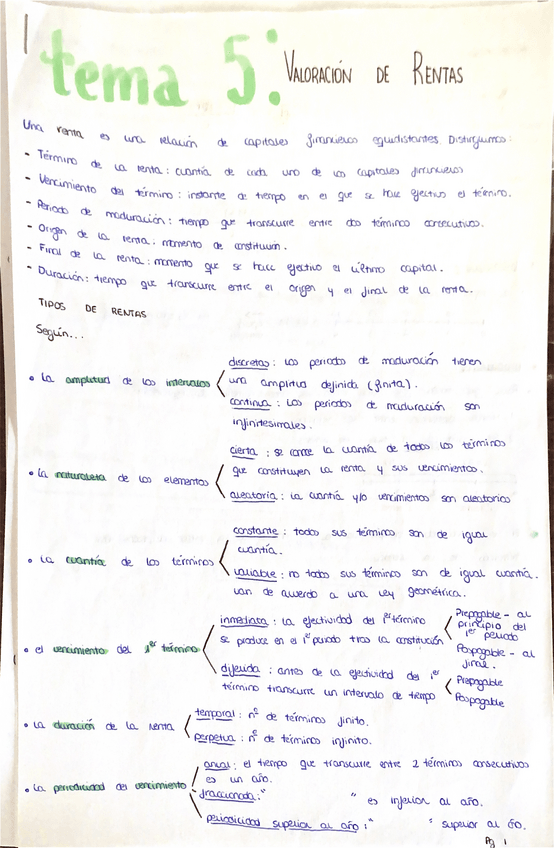 tema 5: VALORACIÓN DE RENTAS
Una renta es una relación de capitales financieros equidistantes. Distinguimos:
- Término de la renta: cuantía de cada uno de los capitales financieros
- Vencimiento del término: instante de tiempo en el que se hace efectivo el término.
- Periodo de maduración: tiempo que transcurre entre dos términos consecutivos.
- Origen de la renta: momento de constitución.
- Final de la renta: momento que se hace efectivo el último capital.
- Duración: tiempo que transcurre entre el origen y el final de la renta.
TIPOS DE RENTAS
Según...
• La amplitud de los intervalos
discretas: los periodos de maduración tienen
una amplitud definida (finita).
continua: Los periodos de maduración son
infinitesimales.
• La naturaleza de los elementos
cierta: se conoce la cuantía de todos los términos
que constituyen la renta y sus vencimientos.
aleatoria: la cuantía y/o vencimientos son aleatorios
• La cuantía de los términos
constante: todos sus términos son de igual
cuantía.
variable: no todos sus términos son de igual cuantía.
van de acuerdo a una ley geométrica.
• el vencimiento del 1er término
inmediata: la efectividad del 1er término
se produce en el 1er periodo tras la constitución
Prepagable - al
principio del
1er periodo
Pospagable - al
final.
diferida: antes de la efectividad del 1er
término transcurre un intervalo de tiempo
Prepagable
Pospagable
• La duración de la renta
temporal: nº de términos finito.
perpetua: nº de términos infinito.
• La periodicidad del vencimiento
anual: el tiempo que transcurre entre 2 términos consecutivos
es un año.
fraccionada: " " es inferior al año.
periodicidad superior al año: " " superior al año.
Pg 1